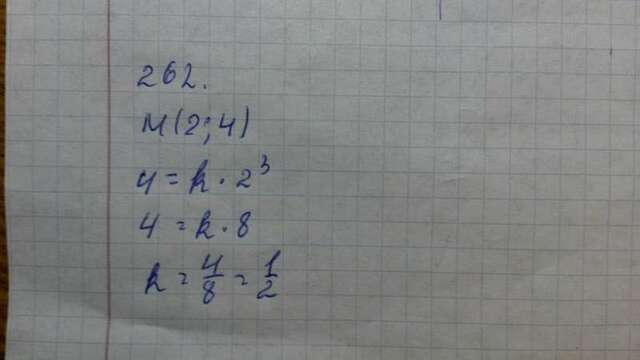 262.
M(2;4)
4 = k · 2³
4 = k · 8
k = 4/8 = 1/2